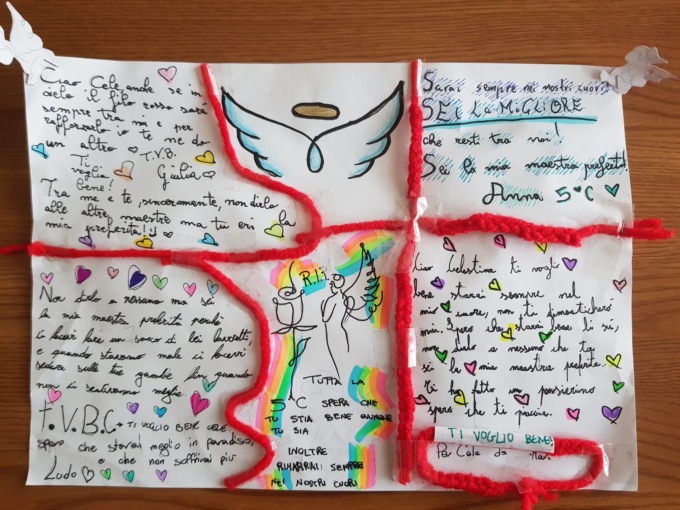 Ciao Cele, anche se in
cielo il filo rosso sarà
sempre tra me e per
rafforzarlo io te ne do
un altro T.V.B.
Ti
voglia
bene! Giulia
Tra me e te, sinceramente, non dirlo
alle altre maestre ma tu eri la
mia preferita!!
Sarai sempre nei nostri cuori
SEI LA MIGLIORE
che resti tra noi!
Sei la mia maestra preferita.
Anna 5°C
Non dirlo a nessuno ma sei
la mia maestra preferita perché
ci facevi fare un sacco di bei lavoretti,
e quando stavamo male ci facevi
sedere sulle tue gambe fin quando
non ci sentivamo meglio.
T.V.B.C → TI VOGLIO BENE CELE
spero che starai meglio in paradiso,
e che non soffrirai più
Ludo
R.I.P
TUTTA LA
5°C SPERA CHE
TU STIA BENE OVUNQUE
TU SIA
INOLTRE
RIMARRAI SEMPRE
NEI NOSTRI CUORI
Ciao Celestina ti voglio
bene starai sempre nel
mio cuore, non ti dimenticherò
mai. Spero che starai bene lì su,
non dirlo a nessuno che tu
sei la mia maestra preferita.
Ti ho fatto un pensierino
spero che ti piaccia.
TI VOGLIO BENE!
Per Cele da